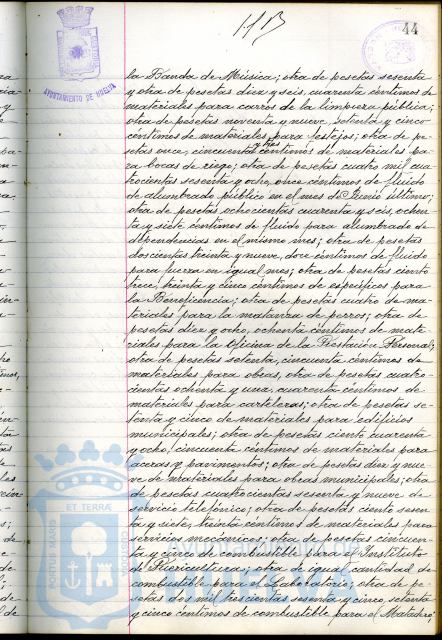 44
AYUNTAMIENTO DE HUELVA
la Banda de Música; otra de pesetas sesenta
y otra de pesetas diez y seis, cuarenta céntimos de
materiales para carros de la limpieza pública;
otra de pesetas noventa y nueve, setenta y cinco
céntimos de materiales para festejos; otra de pe-
setas once, cincuenta y tres céntimos de materiales pa-
ra bocas de riego; otra de pesetas cuatro mil cua-
trocientas sesenta y ocho, once céntimos de fluido
de alumbrado público en el mes de Junio último;
otra de pesetas ochocientas cuarenta y seis, ochen-
ta y siete céntimos de fluido para alumbrado de
dependencias en el mismo mes; otra de pesetas
doscientas treinta y nueve, doce céntimos de fluido
para fuerza en igual mes; otra de pesetas ciento
trece, treinta y cinco céntimos de específicos para
la Beneficencia; otra de pesetas cuatro de ma-
teriales para la matanza de perros; otra de
pesetas diez y ocho, ochenta céntimos de mate-
riales para la Oficina de la Prestación Personal;
otra de pesetas setenta, cincuenta céntimos de
materiales para obras, otra de pesetas cuatro-
cientas ochenta y una, cuarenta céntimos de
materiales para carteleras; otra de pesetas se-
tenta y cinco de materiales para edificios
municipales; otra de pesetas ciento cuarenta
y ocho, cincuenta céntimos de materiales para
aceras y pavimentos; otra de pesetas diez y nue-
ve de materiales para obras municipales; otra
de pesetas cuatrocientas sesenta y nueve de
servicio telefónico; otra de pesetas ciento sesen-
ta y siete, treinta céntimos de materiales para
servicios mecánicos; otra de pesetas cincuen-
ta y cinco de combustible para el Instituto
de Puericultura; otra de igual cantidad de
combustible para el Laboratorio; otra de pe-
setas dos mil trescientas sesenta y cinco, setenta
y cinco céntimos de combustible para el Matadero;
PORTUS MARIS ET TERRAE CUSTODIA